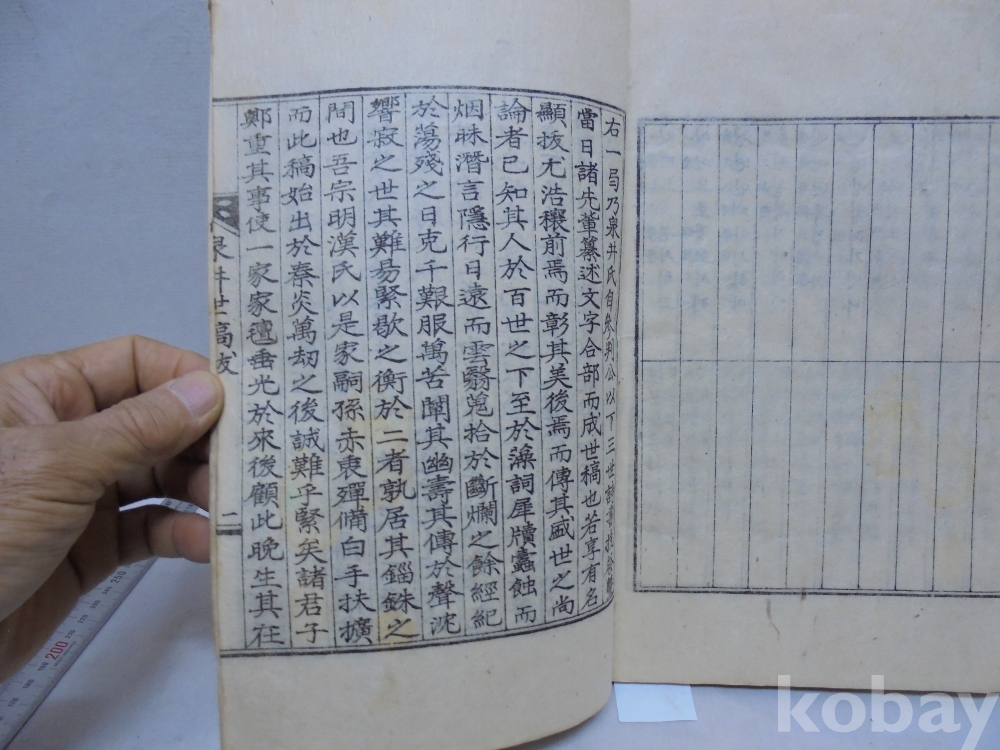 右一弓乃泉井氏自參判公以下三世
當日諸先輩纂述文字合部而成世稿也若享有名
顯拔尤浩穰前焉而彰其美後焉而傳其盛世之尚
論者已知其人於百世之下至於藻詞犀牘蠹蝕而
烟昧潛言隱行日遠而雲翳蒐拾於斷爛之餘經紀
於蕩殘之日克千艱服萬苦闡其幽壽其傳於聲沈
響寂之世其難易緊歇之衡於二者孰居其錙銖之
間也吾宗明漢氏以是家嗣孫赤衷殫備白手扶擴
而此稿始出於秦炎萬劫之後誠難乎緊矣諸君子
鄭重其事使一家家氊垂光於來後顧此晚生其在
泉井世稿跋
二
200
250
kobay